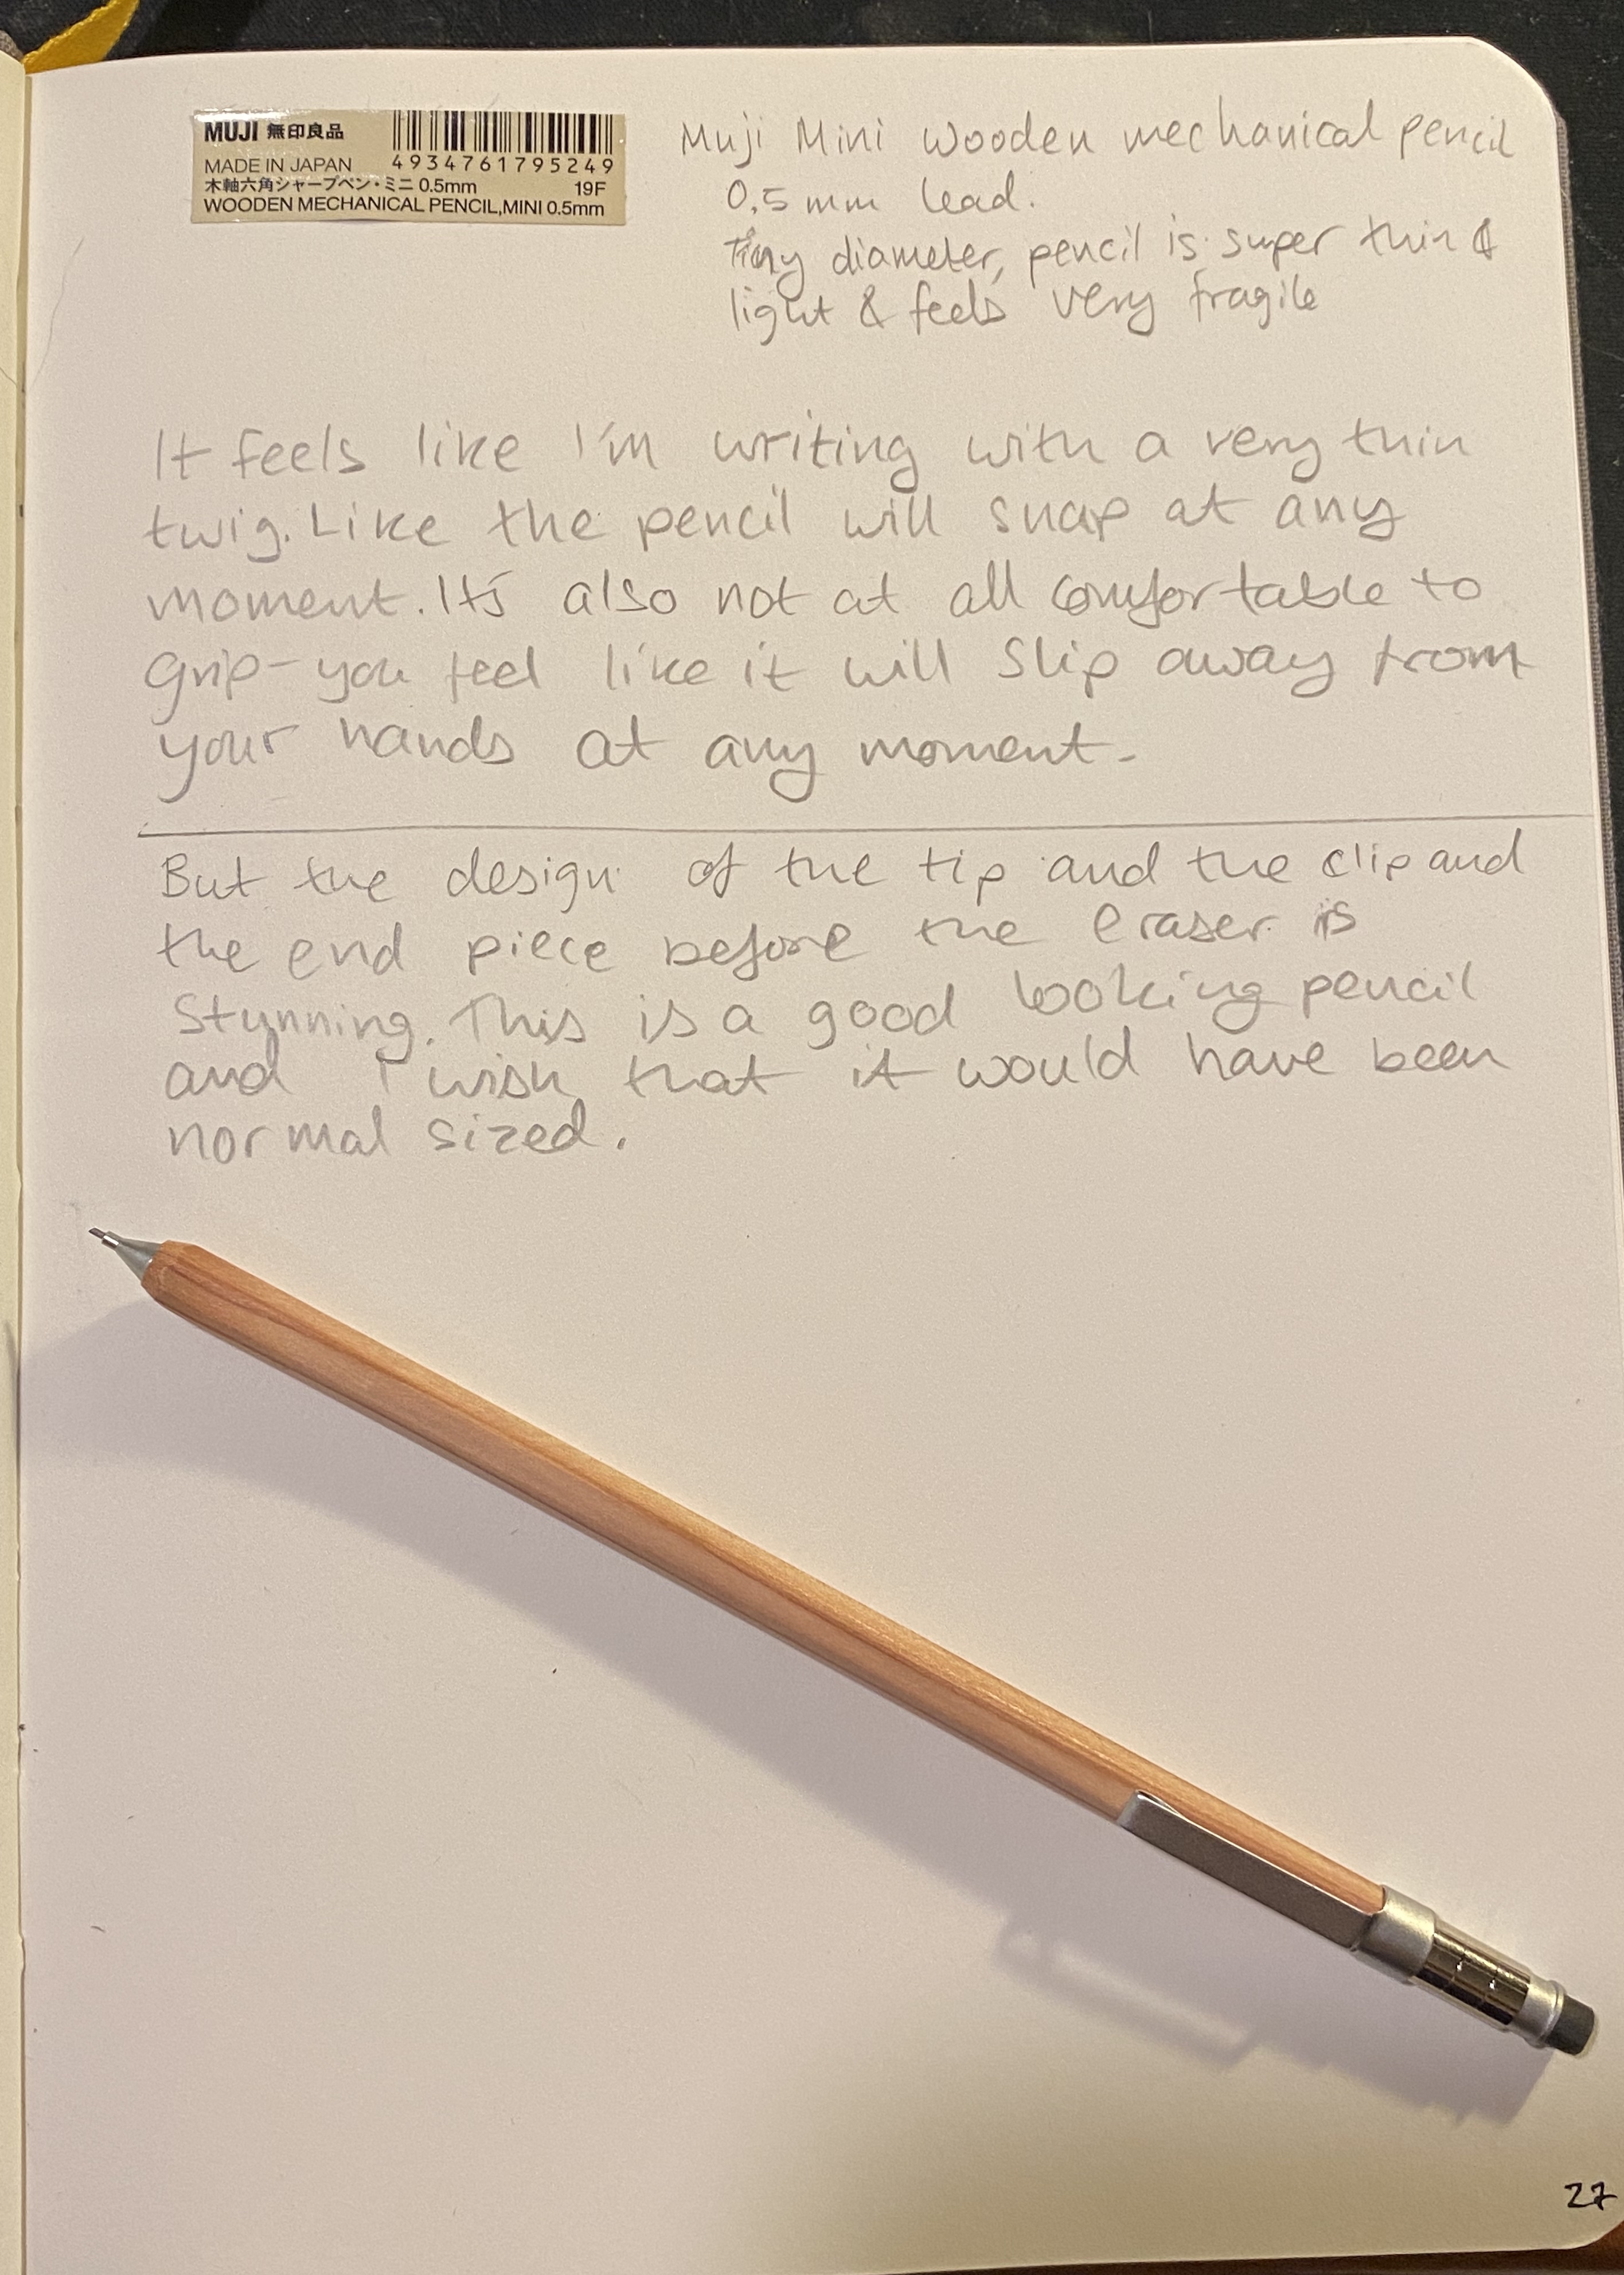 MUJI 無印良品
MADE IN JAPAN 4934761795249
木軸六角シャープペン・ミニ 0.5mm 19F
WOODEN MECHANICAL PENCIL,MINI 0.5mm
Muji Mini wooden mechanical pencil
0.5 mm lead.
tiny diameter, pencil is super thin &
light & feels very fragile
It feels like I'm writing with a very thin
twig. Like the pencil will snap at any
moment. It's also not at all comfortable to
grip - you feel like it will slip away from
your hands at any moment.
But the design of the tip and the clip and
the end piece before the eraser is
stunning. This is a good looking pencil
and I wish that it would have been
normal sized.
27